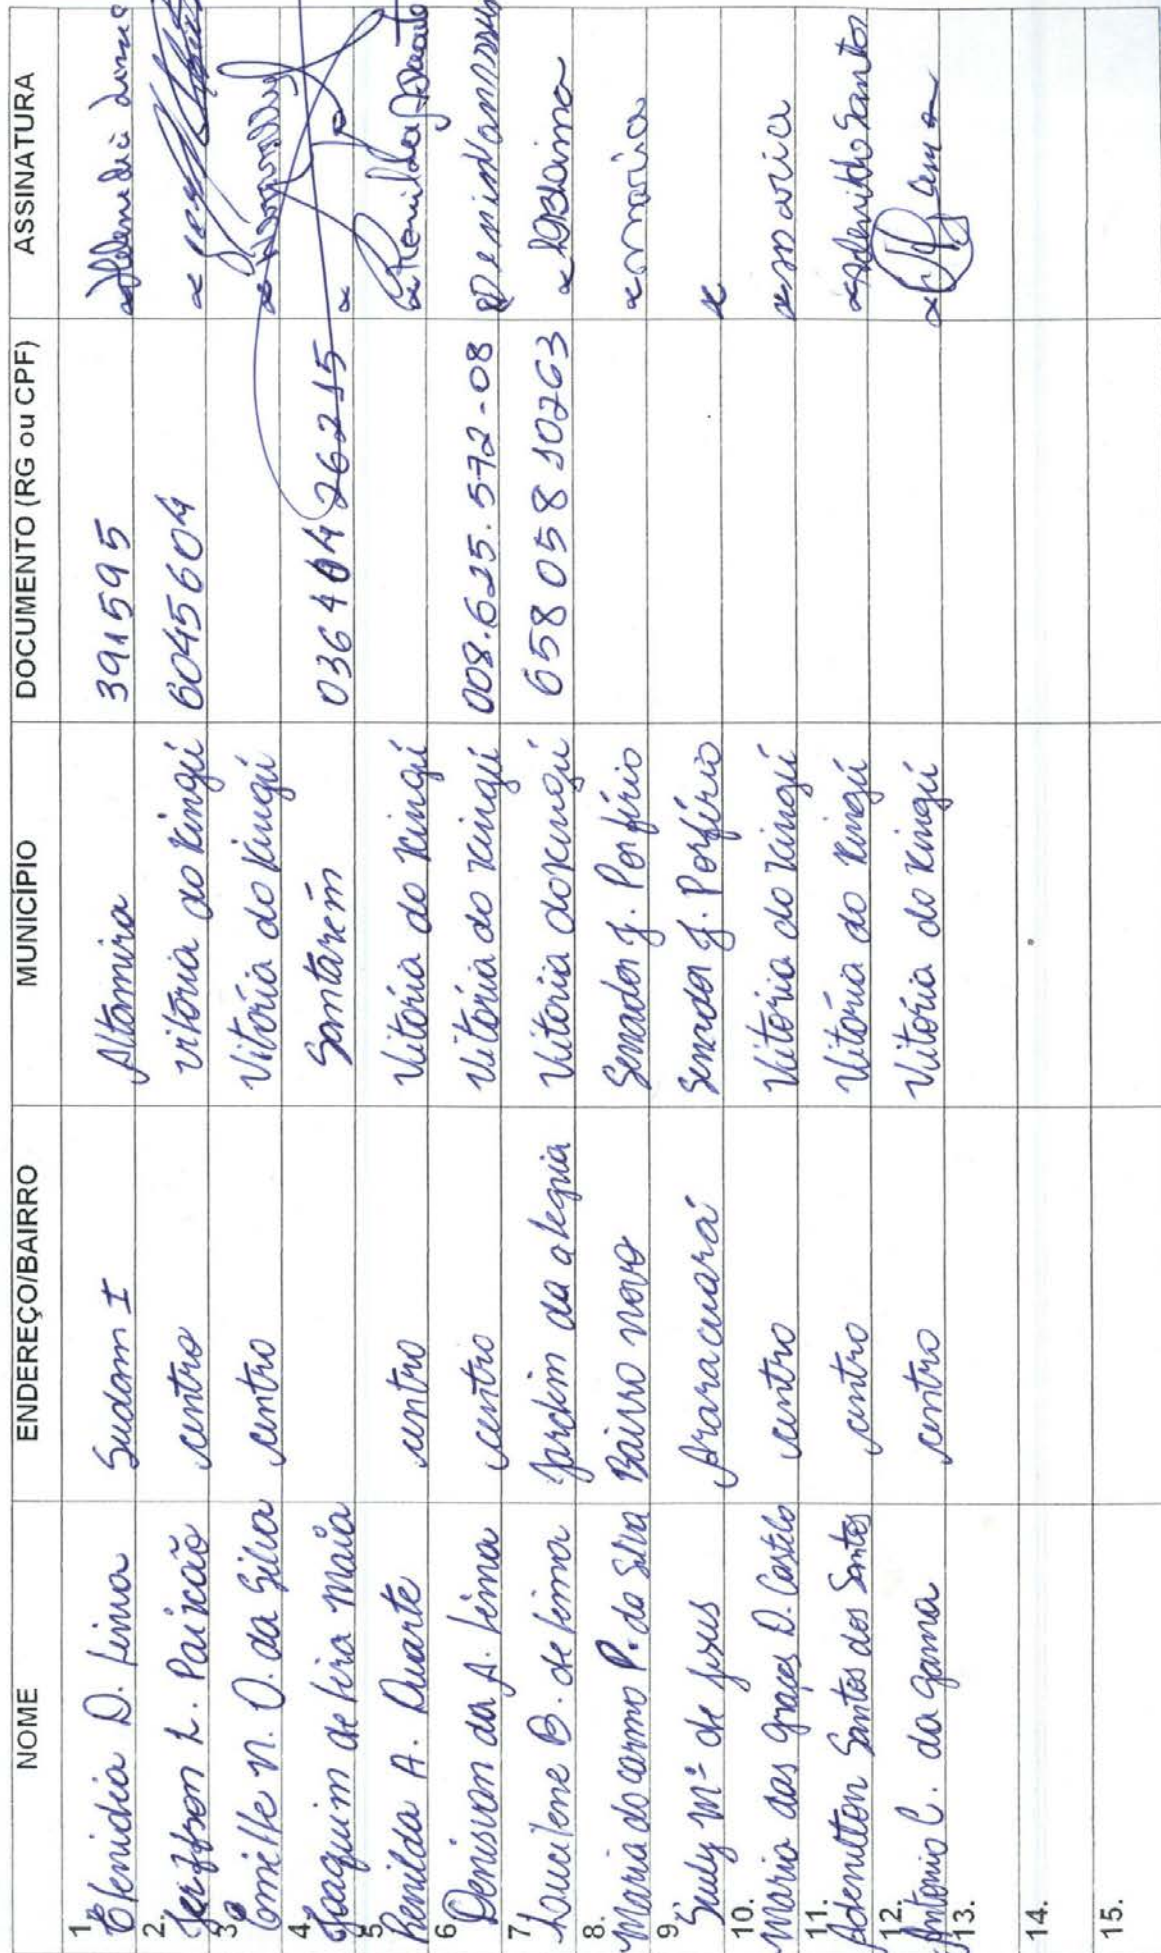 NOME ENDEREÇO/BAIRRO MUNICÍPIO DOCUMENTO (RG ou CPF) ASSINATURA
1. Clenidia D. Lima Sudam I Altamira 3911595
2. Jeffson L. Paixão centro vitória do Xingú 6045604
3. N. O. da Silva centro Vitória do Xingú
4. Joaquim de lira maia Santarém 036 404 26215
5. Renilda A. Duarte centro Vitória do Xingú Renilda Duarte
6. Denisvan da A. Lima centro Vitória do Xingú 008.625.572-08
7. Lucilene B. de lima Jardim da alegria Vitória do Xingú 658 058 10263 LBLima
8. Maria do carmo P. da Silva Bairro novo Senador J. Porfírio x maria
9. Suely Mª de Jesus Araracuará Senador J. Porfírio x
10. Maria das graças D. Castelo centro Vitória do Xingú x maria
11. Adenilton Santos dos Santos centro Vitória do Xingú x Adenilto Santos
12. Antonio C. da gama centro Vitória do Xingú
13.
14.
15.